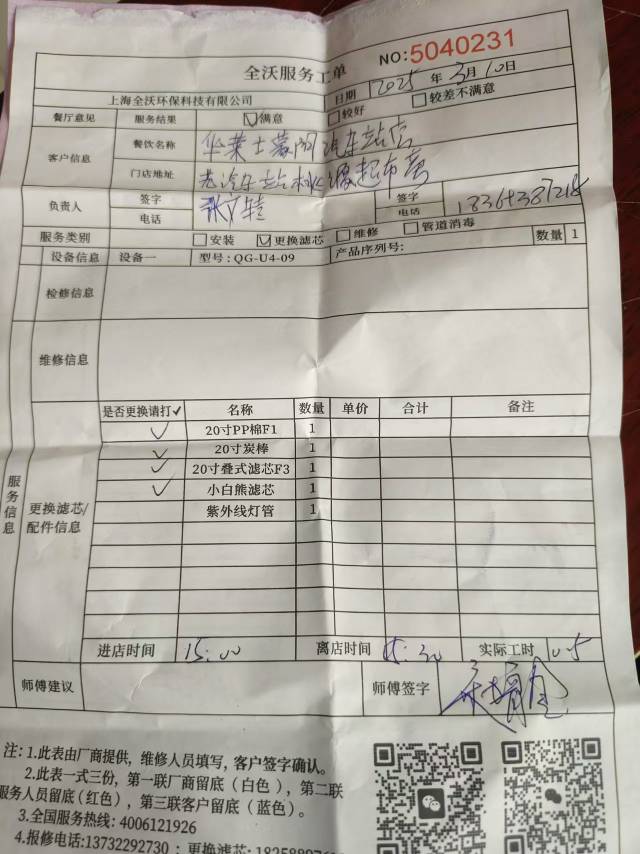 全沃服务工单
NO:5040231
上海全沃环保科技有限公司
日期 2025 年 3月 10日
餐厅意见 服务结果 满意 较好 较差不满意
客户信息 餐饮名称 华莱士蒙阴汽车站店
门店地址 老汽车站
负责人 签字 签字
电话 电话
服务类别 安装 更换滤芯 维修 管道消毒 数量 1
设备信息 设备一 型号:QG-U4-09 产品序列号:
检修信息
维修信息
服务信息
更换滤芯/配件信息
是否更换请打✓ 名称 数量 单价 合计 备注
✓ 20寸PP棉F1 1
✓ 20寸炭棒 1
✓ 20寸叠式滤芯F3 1
✓ 小白熊滤芯 1
紫外线灯管 1
进店时间 15:00 离店时间 15:30 实际工时 0.5
师傅建议 师傅签字
注:1.此表由厂商提供,维修人员填写,客户签字确认。
2.此表一式三份,第一联厂商留底(白色),第二联
服务人员留底(红色),第三联客户留底(蓝色)。
3.全国服务热线:4006121926
4.报修电话:13732292730;更换滤芯: